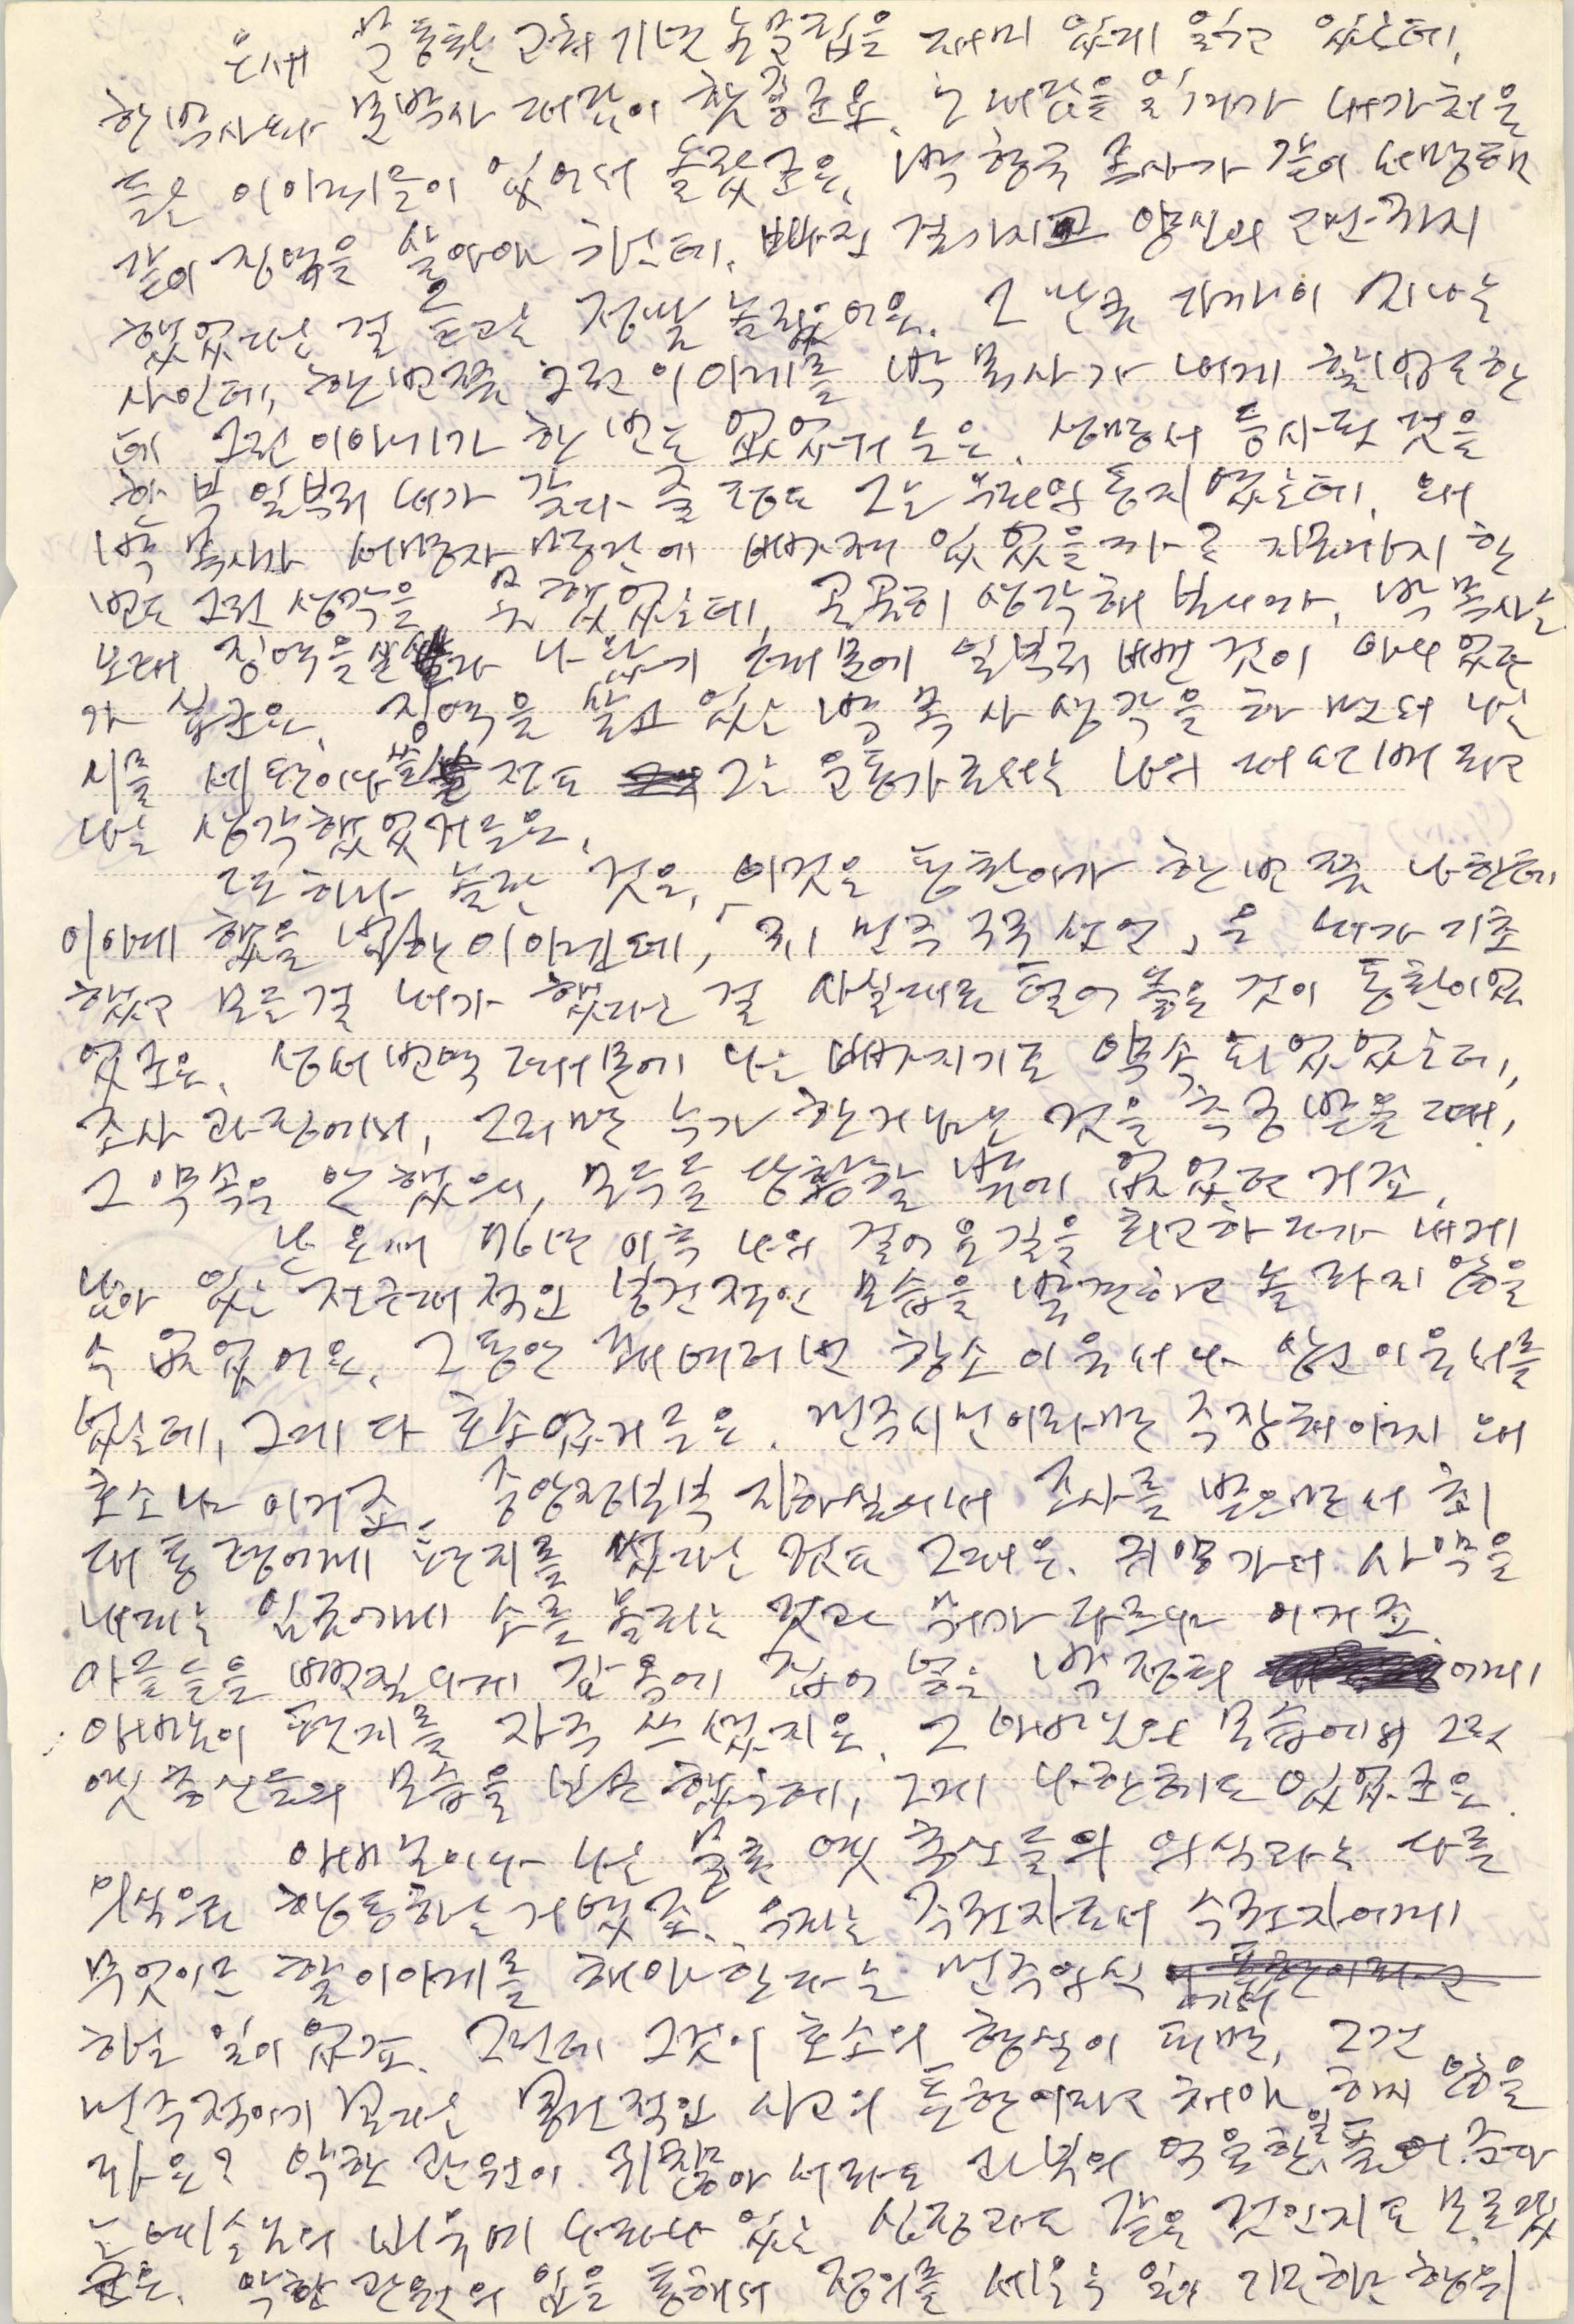 요새 문동환 고희 기념 논문집을 재미 있게 읽고 있는데,
한 박사와 문 박사 대담이 참 좋군요. 그 대담을 읽다가 내가 처음
듣는 이야기들이 있어서 놀랐군요. 박형규 목사가 같이 서명해
같이 징역을 살아야 하는데, 빠진 걸 가지고 양심의 가책까지
했었다는 걸 듣고는 정말 놀랐어요. 그 만큼 가까이 지나는
사인데, 한 번쯤 그런 이야기를 박 목사가 내게 할 법도 한
데 그런 이야기가 한 번도 없었거든요. 성명서 등사된 것을
한 부 일부러 내가 갖다 줄 정도로 그는 우리와 동지였는데, 왜
박 목사가 서명자 명단에 빠져 있었을까고 지금까지 한
번도 그런 생각을 못 했었는데, 곰곰히 생각해 보니까, 박 목사는
오래 징역을 살다 나왔기 때문에 일부러 뺀 것이 아니었는
가 싶군요. 징역을 살고 있는 박 목사 생각을 하면서 나는
시를 세 편이나 쓸 정도로 그는 운동가로서는 나의 대선배라고
나는 생각했었거든요.
또 하나 놀란 것은, 이것은 동환이가 한 번쯤 나한테
이야기 했을 법한 이야긴데, 「3.1 민주 구국 선언」은 내가 기초
했고 모든 걸 내가 했다는 걸 사실대로 털어 놓은 것이 동환이었
었군요. 성서 번역 때문에 나는 빠지기로 약속 되어 있었는데,
조사 과정에서, 그러면 누가 한 거냐는 것을 추궁 받을 때,
그 약속은 안 했으니, 모두들 당황할 밖에 없었던 거죠.
난 요새 76년 이후 나의 걸어온 길을 회고하다가 내게
남아 있는 전근대적인 봉건적인 모습을 발견하고 놀라지 않을
수 없었어요. 그 동안 꽤 여러 번 항소 이유서나 상고 이유서를
썼는데, 그게 다 호소였거든요. 민주시민이라면 주장해야지 왜
호소냐 이거죠. 중앙정보부 지하실에서 조사를 받으면서 최
대통령에게 편지를 썼다는 것도 그래요. 귀양가서 사약을
내리는 임금에게 소를 올리는 것과 뭐가 다르냐 이거죠.
아들들을 뻔질나게 감옥에 집어 넣는 박정희 에게
아버님이 편지를 자주 쓰셨지요. 그 아버님의 모습에서 그런
옛 충신들의 모습을 보곤 했는데, 그게 나한테도 있었군요.
아버님이나 나는 물론 옛 충신들의 의식과는 다른
의식으로 행동하는 거였죠. 우리는 주권자로서 수권자에게
무엇이든 할 이야기를 해야 한다는 민주의식 에서
하는 일이었죠. 그런데 그것이 호소의 형식이 되면, 그건
민주적이기 보다는 봉건적인 사고의 표현이라고 해야 하지 않을
까요? 악한 관원이 귀찮아서라도 과부의 억울한 일을 풀어 준다
는 예수님의 비유에 나타나 있는 심정과도 같은 것인지도 모르겠
군요. 악한 관원의 입을 통해서 정의를 세우는 일이 가능하다는 행위